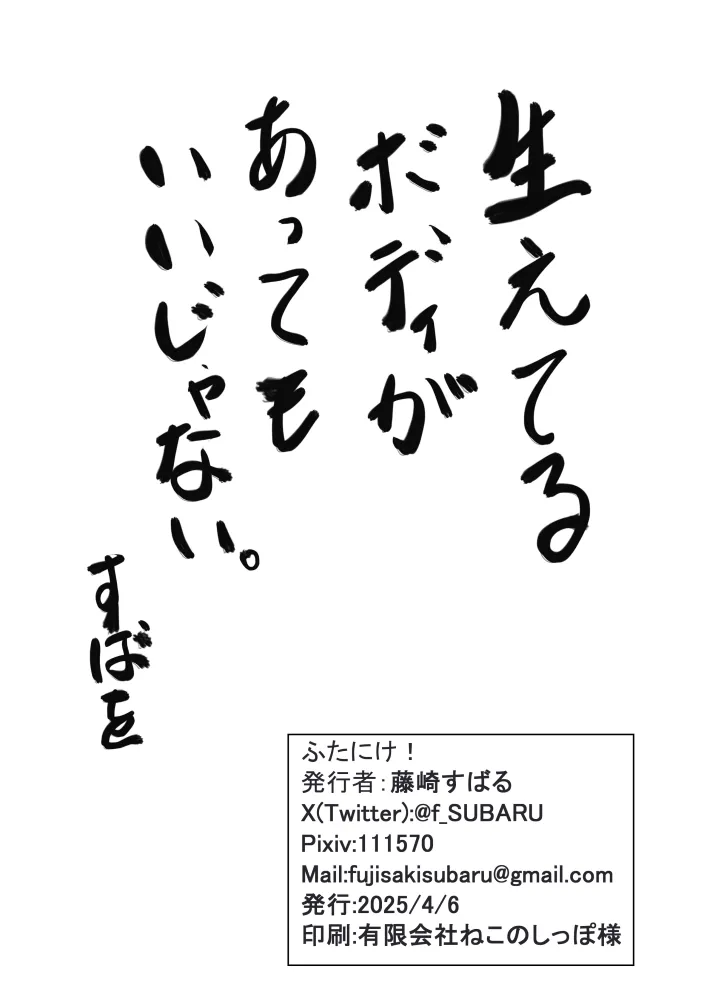 生えてる
ボディが
あっても
いいじゃない。
すばを
ふたにけ！
発行者：藤崎すばる
X(Twitter):@f_SUBARU
Pixiv:111570
Mail:fujisakisubaru@gmail.com
発行:2025/4/6
印刷:有限会社ねこのしっぽ様